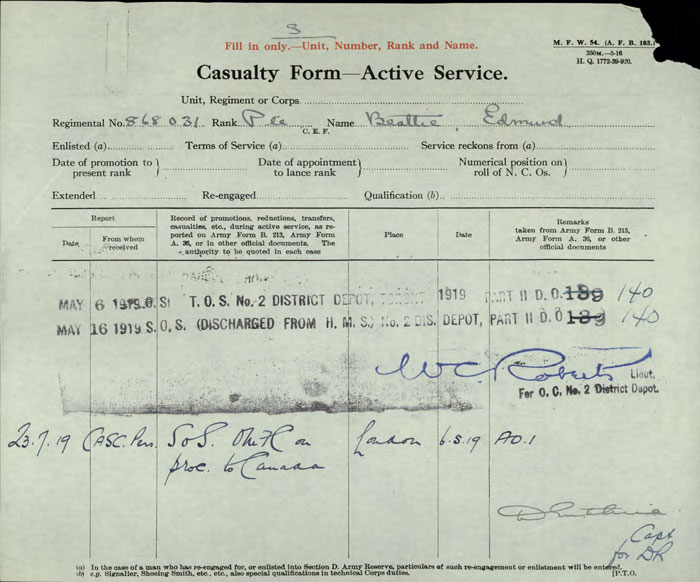 3
Fill in only.—Unit, Number, Rank and Name.
M. F. W. 54. (A. F. B. 103.)
350M.—5-16
H. Q. 1772-39-920.
Casualty Form—Active Service.
Unit, Regiment or Corps
Regimental No. 868031 Rank Pte Name Beattie, Edmund
C. E. F.
Enlisted (a) Terms of Service (a) Service reckons from (a)
Date of promotion to present rank Date of appointment to lance rank Numerical position on roll of N. C. Os.
Extended Re-engaged Qualification (b)
Report
Date
From whom received
Record of promotions, reductions, transfers, casualties, etc., during active service, as reported on Army Form B. 213, Army Form A. 36, or in other official documents. The authority to be quoted in each case
Place
Date
Remarks
taken from Army Form B. 213, Army Form A. 36, or other official documents
MAY 6 1919 T. O. S. No. 2 DISTRICT DEPOT, 1919 PART II D. O. 189 140
MAY 16 1919 S. O. S. (DISCHARGED FROM H. M. S.) No. 2 DIS. DEPOT, PART II D. O 189 140
WC Roberts Lieut.
For O. C. No. 2 District Depot.
23.7.19 CASC. Pers. SoS. on London 6.5.19 AO.1
proc. to Canada
Capt
for DR
(a) In the case of a man who has re-engaged for, or enlisted into Section D. Army Reserve, particulars of such re-engagement or enlistment will be entered.
(b) e.g. Signaller, Shoeing Smith, etc., etc., also special qualifications in technical Corps duties. [P.T.O.